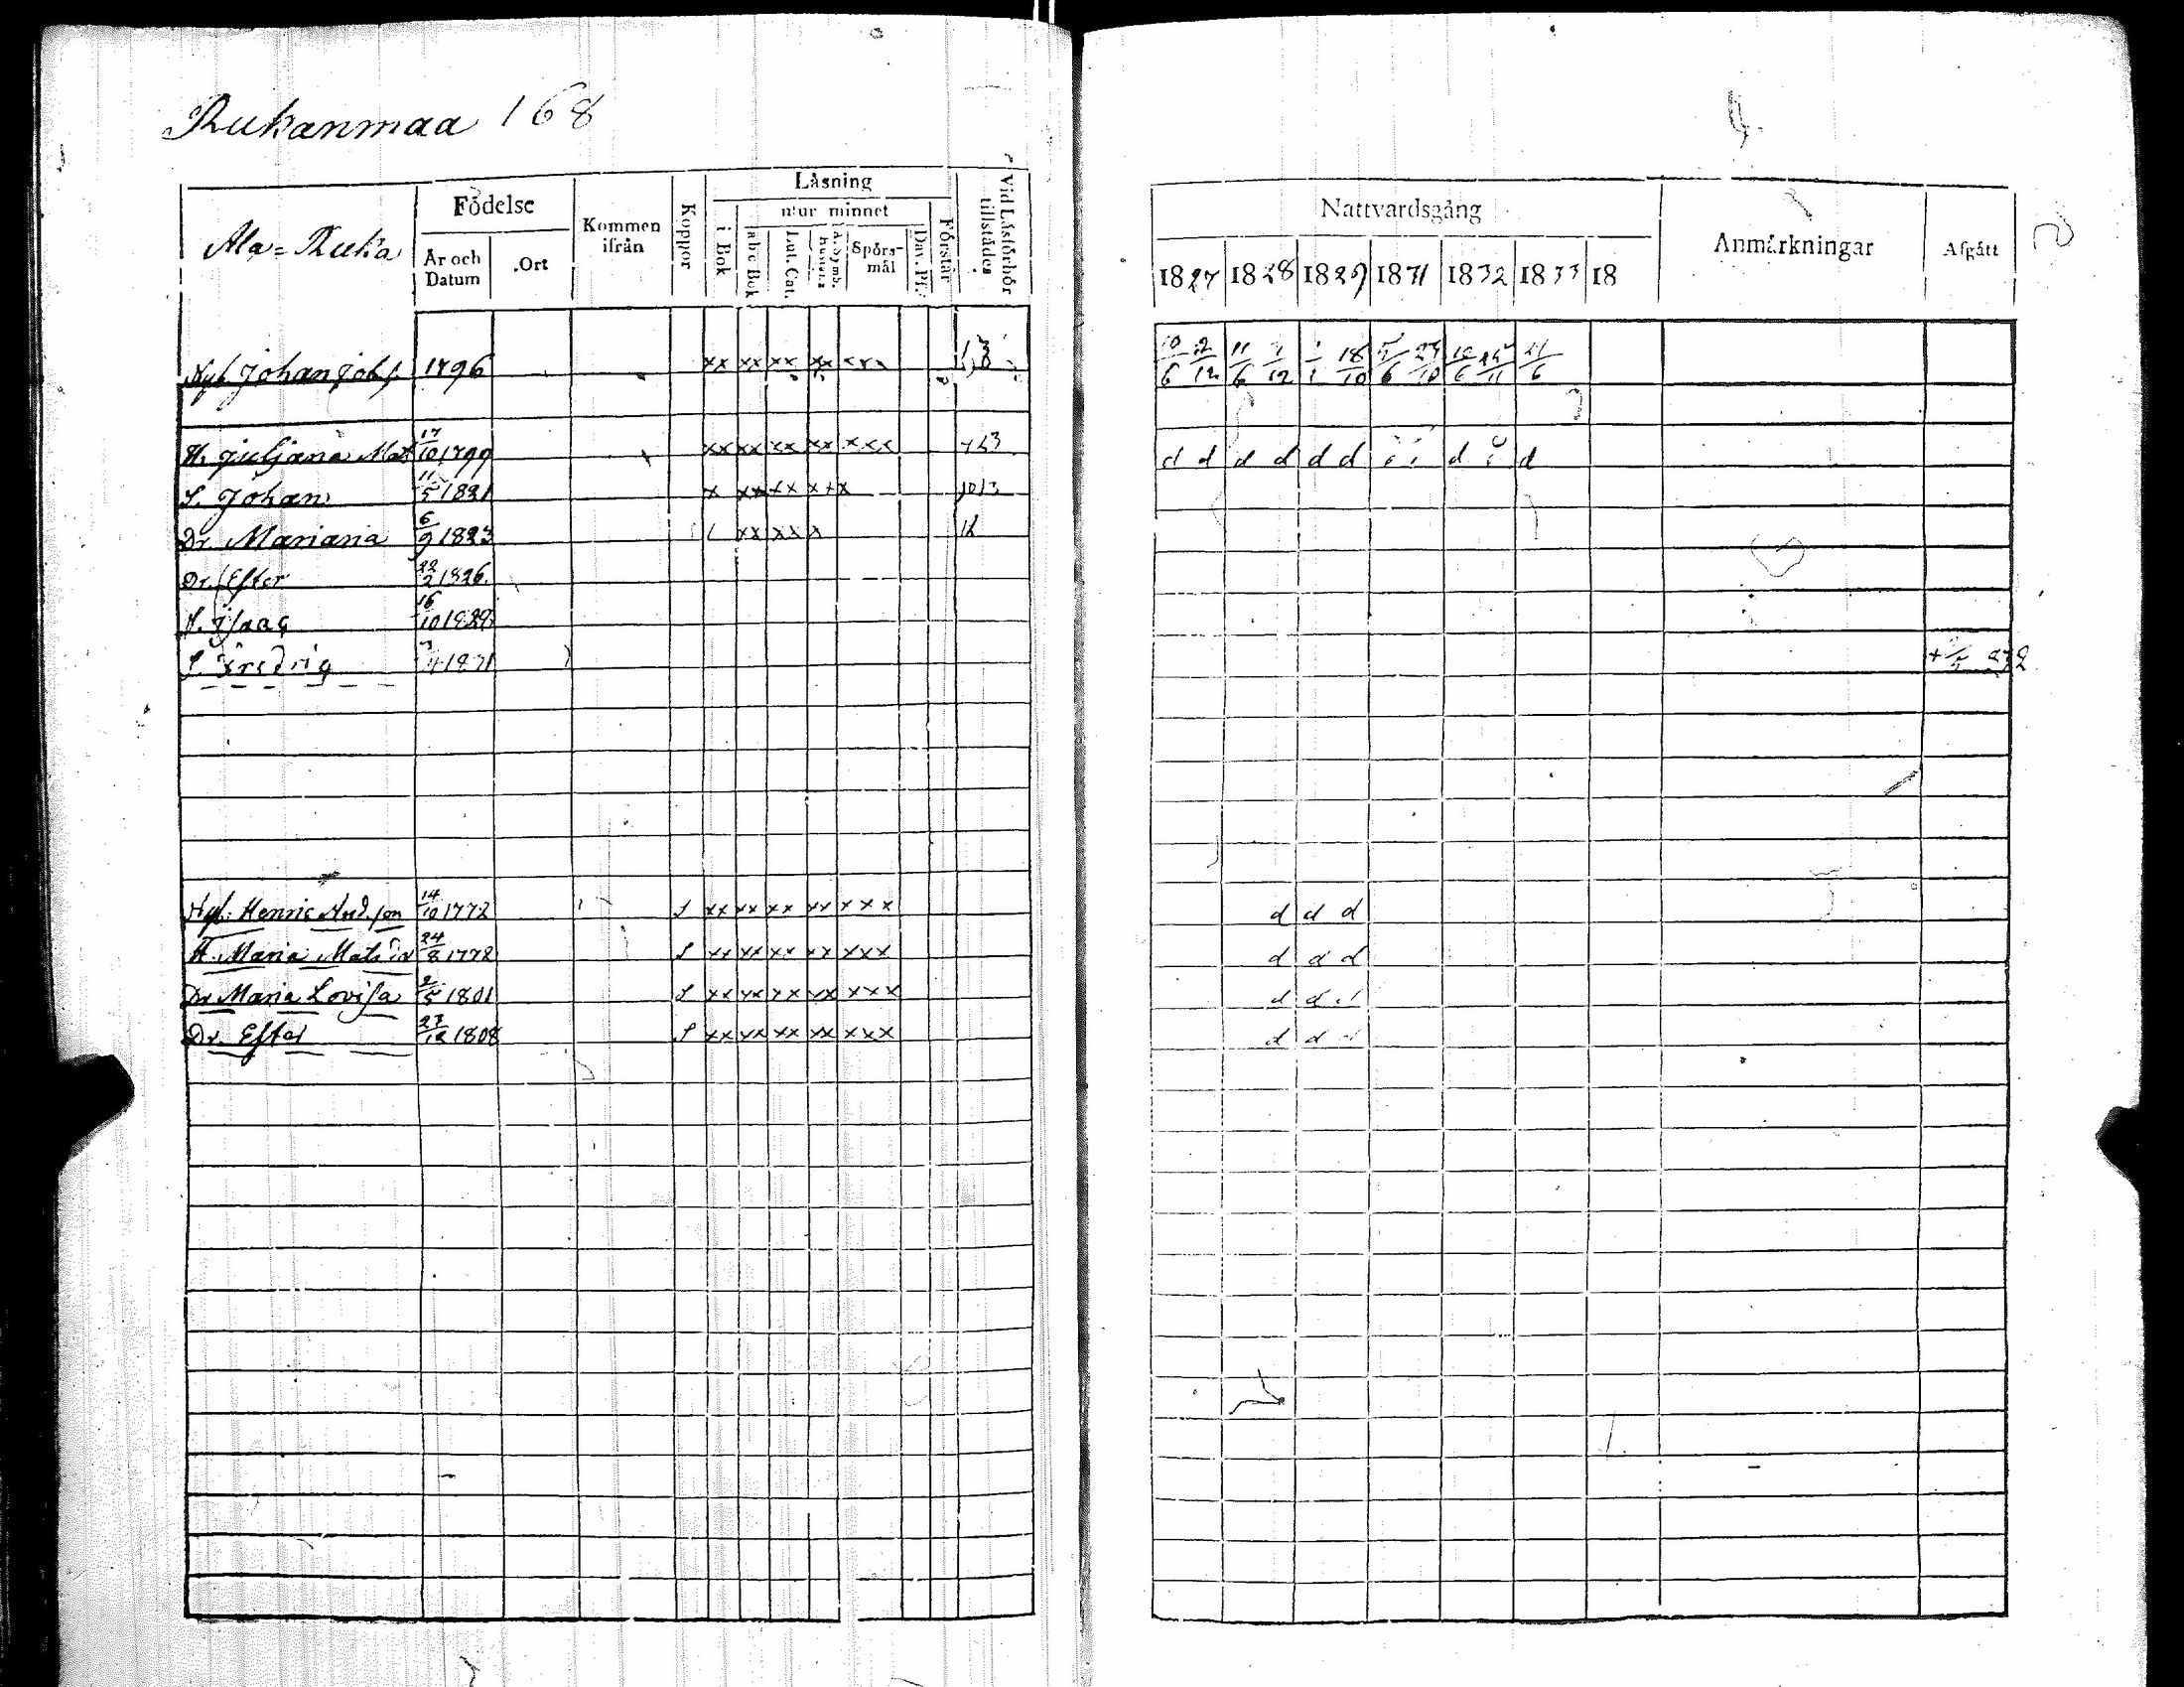 Rukanmaa 168
Ala=Ruka
Födelse
År och Datum
Ort
Kommen ifrån
Koppor
Läsning
i Bok
utur minnet
abc Bok
Lut. Cat.
Spörs-mål
Dav. Ps.
Förstår
Vid Läsförhör tillstädes
Nyb. Johan Joh.s. 1796 xx xx xx xx xxx
H. Juliana Mat 17/10 1799 xx xx xx xx xxx
S. Johan 11/5 1821 x xx xx xxx
Dr. Mariana 6/9 1823 xx xx x
Dr. Ester 22/2 1826
S. Isaac 16/10 1829
S. Fredric 1831
Nyb. Henric And.son 14/10 1772 S xx xx xx xx xxx
H. Maria Mats.dr 24/8 1772 S xx xx xx xx xxx
Dr Maria Lovisa 2/5 1801 S xx xx xx xx xxx
Dr. Ester 27/12 1808 S xx xx xx xx xxx
Nattvardsgång
1827 1828 1829 1831 1832 1833 18
Anmärkningar
Afgått
10/6 2/12 11/6 1/1 18/10 11/6
d d d d d d d d
d d d
d d d
d d
d d